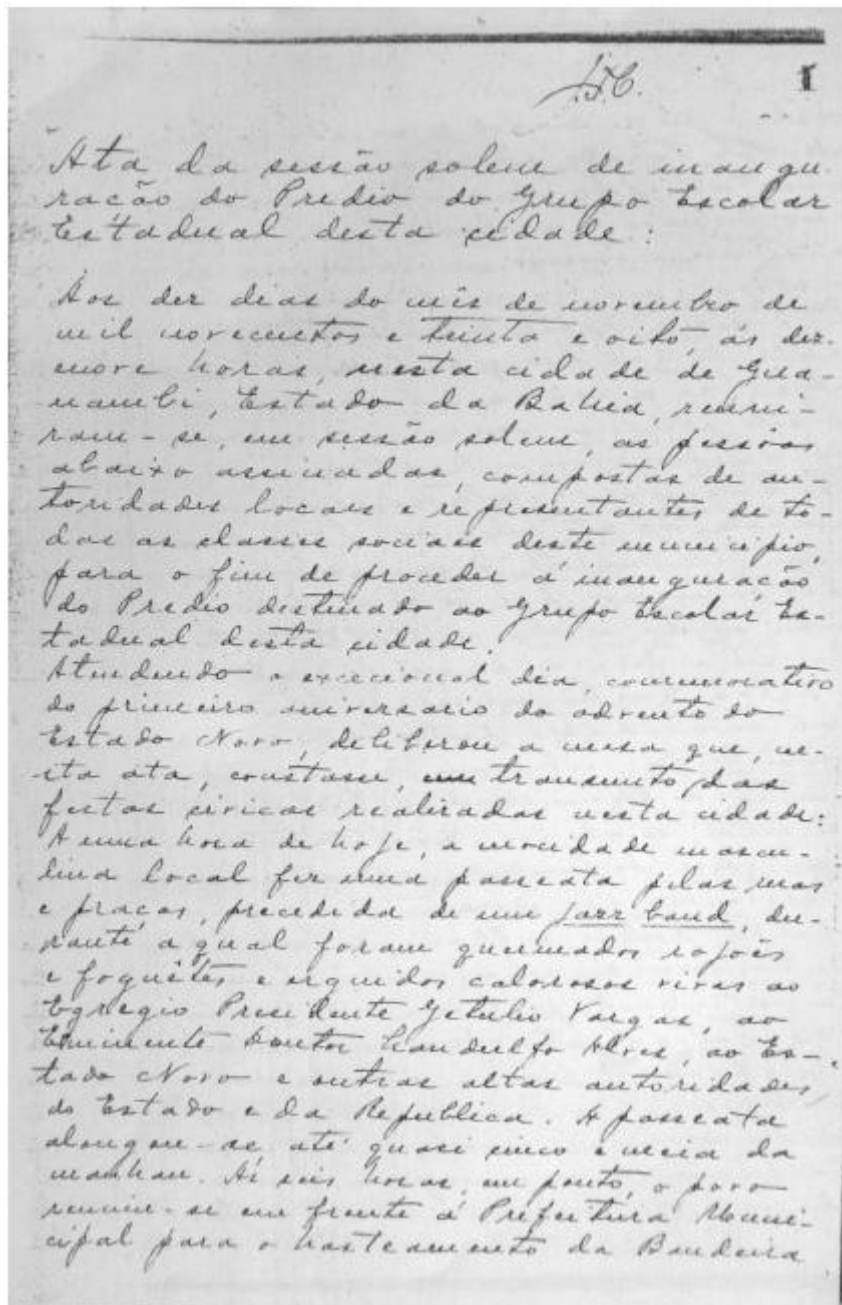 J.F.C.
1
Ata da sessão solene de inaugu-
ração do Predio do Grupo Escolar
Estadual desta cidade:
Aos dez dias do mês de novembro de
mil novecentos e trinta e oito, ás dez-
enove horas, nesta cidade de Gua-
nambi, Estado da Bahia, reuni-
ram-se, em sessão solene, as pessôas
abaixo assinadas, compostas de au-
toridades locaes e representantes de to-
das as classes sociaes deste municipio,
para o fim de proceder á inauguração
do Predio destinado ao Grupo Escolar Es-
tadual desta cidade.
Atendendo o excecional dia, comemorativo
do primeiro aniversario do advento do
Estado Novo, deliberou a mesa que, ne-
sta ata, constasse, transunto das
festas civicas realizadas nesta cidade:
A uma hora de hoje, a mocidade mascu-
lina local fez uma passeata pelas ruas
e praças, precedida de um jazz band, du-
rante a qual foram queimados rojões
e foguêtes e erguidos calorosos vivas ao
Egregio Presidente Getulio Vargas, ao
Eminente Doutor Landulfo Alves, ao Es-
tado Novo e outras altas autoridades
do Estado e da Republica. A passeata
alongou-se até quasi cinco e meia da
manhan. Ás seis horas, em ponto, o povo
reuniu-se em frente á Prefeitura Muni-
cipal para o hasteamento da Bandeira